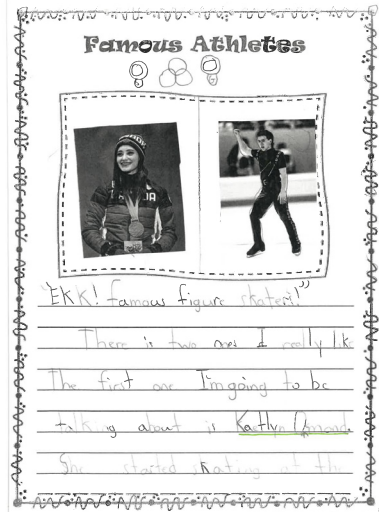 Famous Athletes
"EKK! famous figure skaters!"
There is two ones I really like
The first one I'm going to be
talking about is Kaetlyn Osmond.
She started skating at the